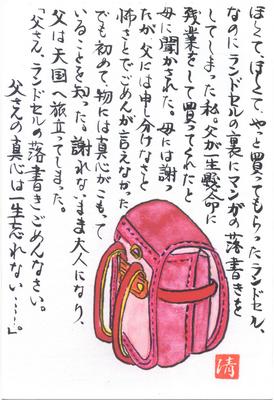 ほしくて、ほしくて、やっと買ってもらったランドセル、
なのにランドセルの裏にマンガの落書きを
してしまった私。父が一生懸命に
残業をして買ってくれたと
母に聞かされた。母には謝っ
たが、父には申し分けなさと
怖さとでごめんが言えなかった
でも初めて、物には真心がこもって
いることを知った。謝れないまま大人になり、
父は天国へ旅立ってしまった。
「父さん、ランドセルの落書きごめんなさい。
父さんの真心は一生忘れない……。」
清